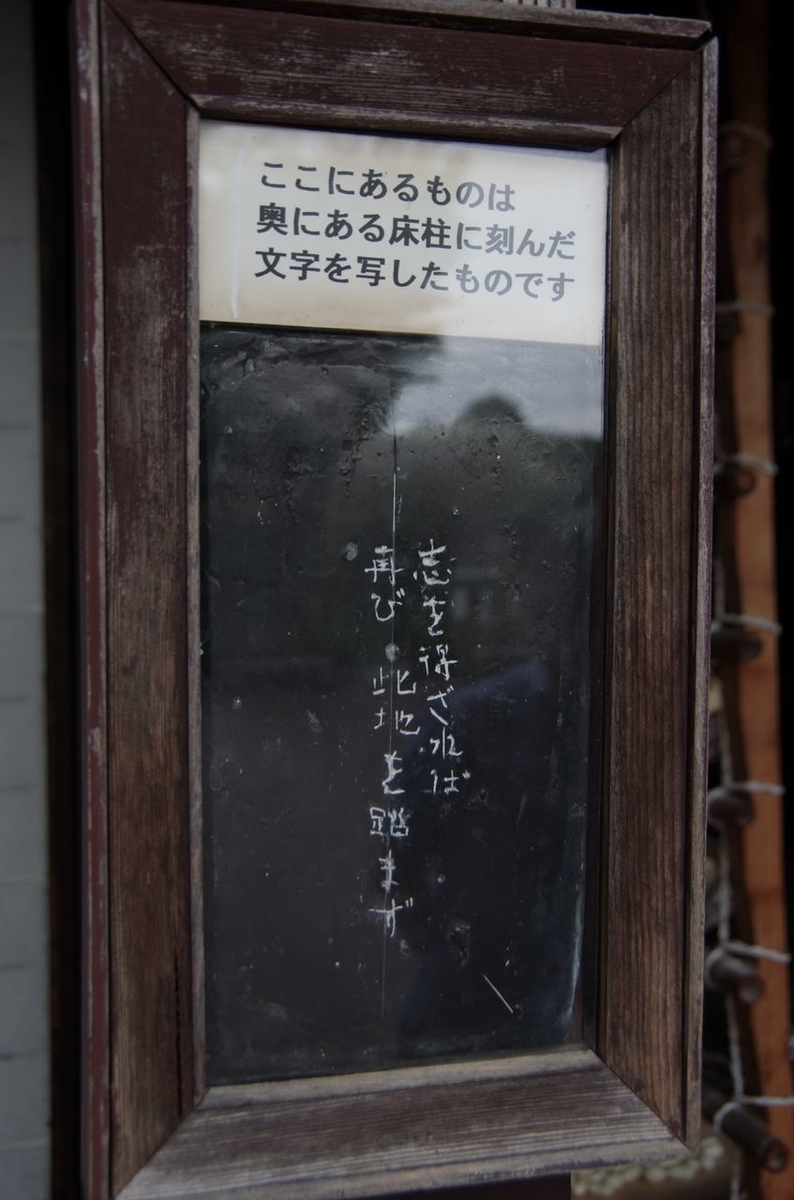 ここにあるものは
奥にある床柱に刻んだ
文字を写したものです
志を得ざれば
再び此地を踏まず